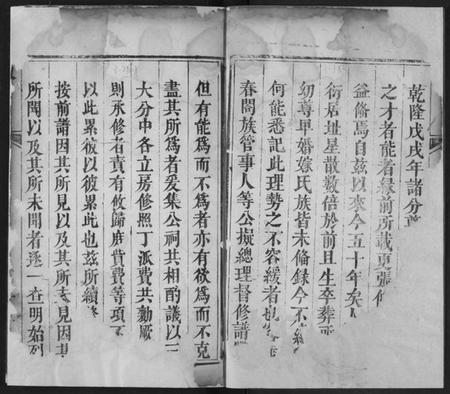 乾隆戊戌年譜分
之才者能者聚前所載更張
益脩焉自茲以來今五十年矣
衍居址星散數倍於前且生卒葬
幼尊卑婚嫁氏族皆未脩錄今不
何能悉記此理勢之不容緩者也
春閤族管事人等公擬總理督修譜
但有能爲而不爲者亦有欲爲而不克
盡其所爲者爰集公祠共相酌議以三
大分中各立房修照丁派費共勷厥
則承修者責有攸歸庶貲費等項
以此累彼以彼累此也茲所續
按前譜因其所見以及其所未見因其
所聞以及其所未聞者逐一查明始列